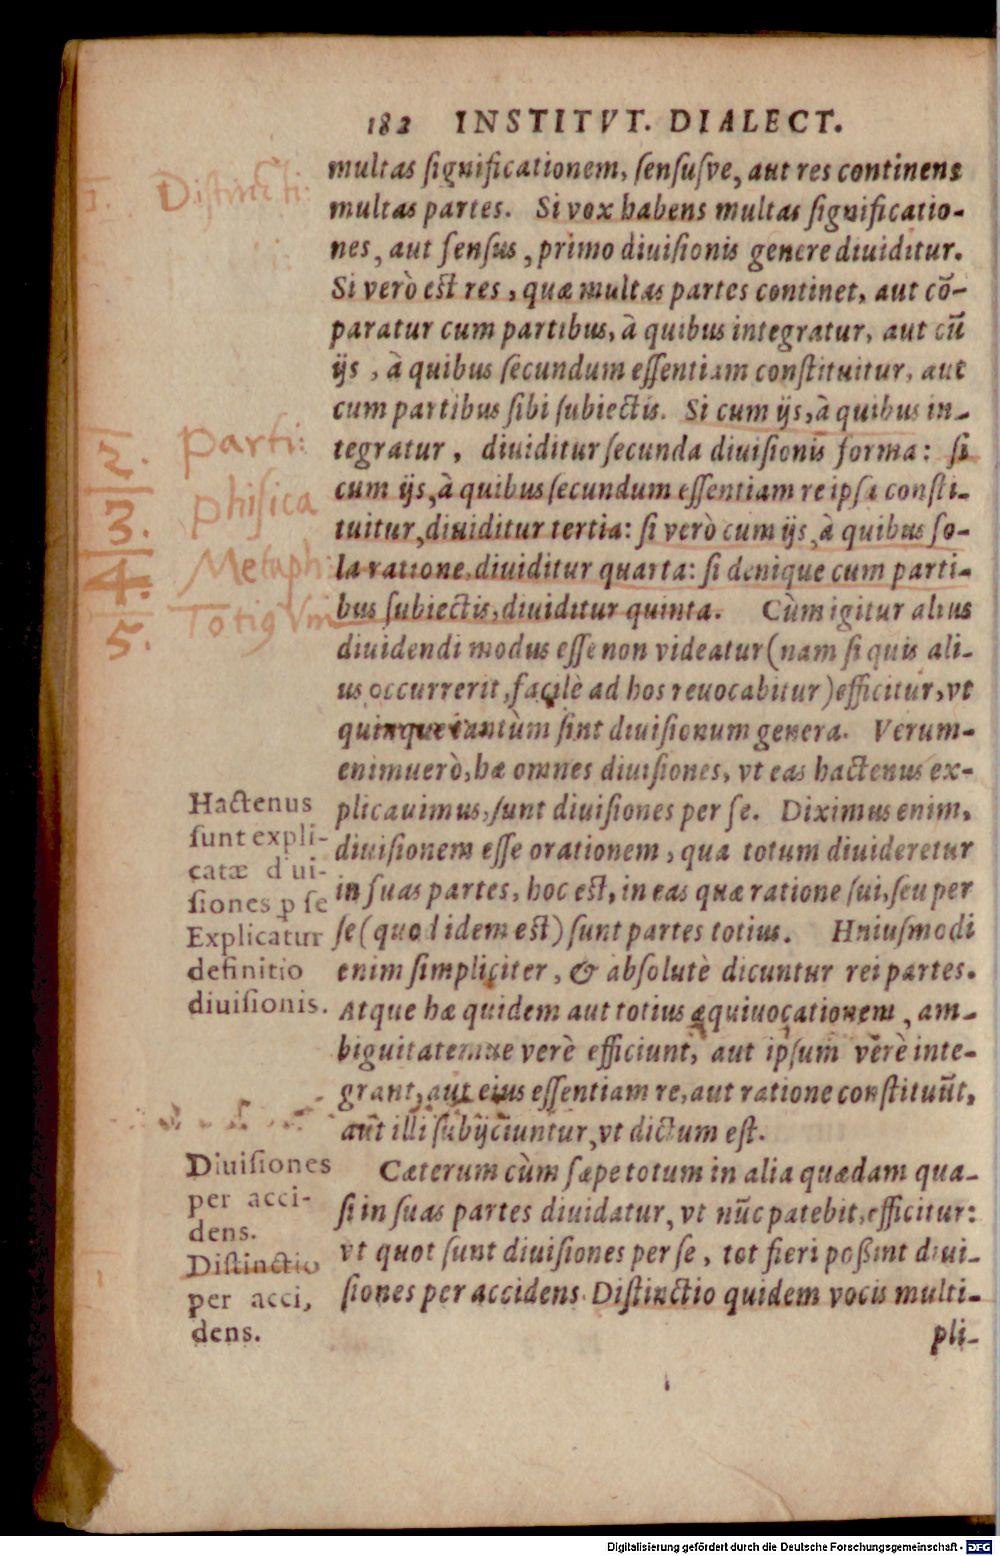 182 INSTITVT. DIALECT.
multas significationem, sensusve, aut res continens
multas partes. Si vox habens multas significatio-
nes, aut sensus, primo diuisionis genere diuiditur.
Si verò est res, quæ multas partes continet, aut cō-
paratur cum partibus, à quibus integratur, aut cū
ijs, à quibus secundum essentiam constituitur, aut
cum partibus sibi subiectis. Si cum ijs, à quibus in-
tegratur, diuiditur secunda diuisionis forma: si
cum ijs, à quibus secundum essentiam re ipsa consti-
tuitur, diuiditur tertia: si verò cum ijs, à quibus so-
la ratione, diuiditur quarta: si denique cum parti-
bus subiectis, diuiditur quinta. Cùm igitur alius
diuidendi modus esse non videatur (nam si quis ali-
us occurrerit, facilè ad hos reuocabitur) efficitur, vt
quinque tantùm sint diuisionum genera. Verum-
enimuerò, hæ omnes diuisiones, vt eas hactenus ex-
plicauimus, sunt diuisiones per se. Diximus enim,
diuisionem esse orationem, qua totum diuideretur
in suas partes, hoc est, in eas quæ ratione sui, seu per
se (quod idem est) sunt partes totius. Huiusmodi
enim simpliciter, & absolutè dicuntur rei partes.
Atque hæ quidem aut totius æquiuocationem, am-
biguitatemue verè efficiunt, aut ipsum verè inte-
grant, aut eius essentiam re, aut ratione constituūt,
aut illi subijciuntur, vt dictum est.
Cæterum cùm sæpe totum in alia quædam qua-
si in suas partes diuidatur, vt nūc patebit, efficitur:
vt quot sunt diuisiones per se, tot fieri possint diui-
siones per accidens. Distinctio quidem vocis multi-
pli-
1. Distincti:
2. parti:
3. phisica
4. Metaph:
5. Totiꝰ Vni
Hactenus
sunt expli-
catæ diui-
siones ꝑ se
Explicatur
definitio
diuisionis.
Diuisiones
per acci-
dens.
Distinctio
per acci,
dens.
Digitalisierung gefördert durch die Deutsche Forschungsgemeinschaft - DFG